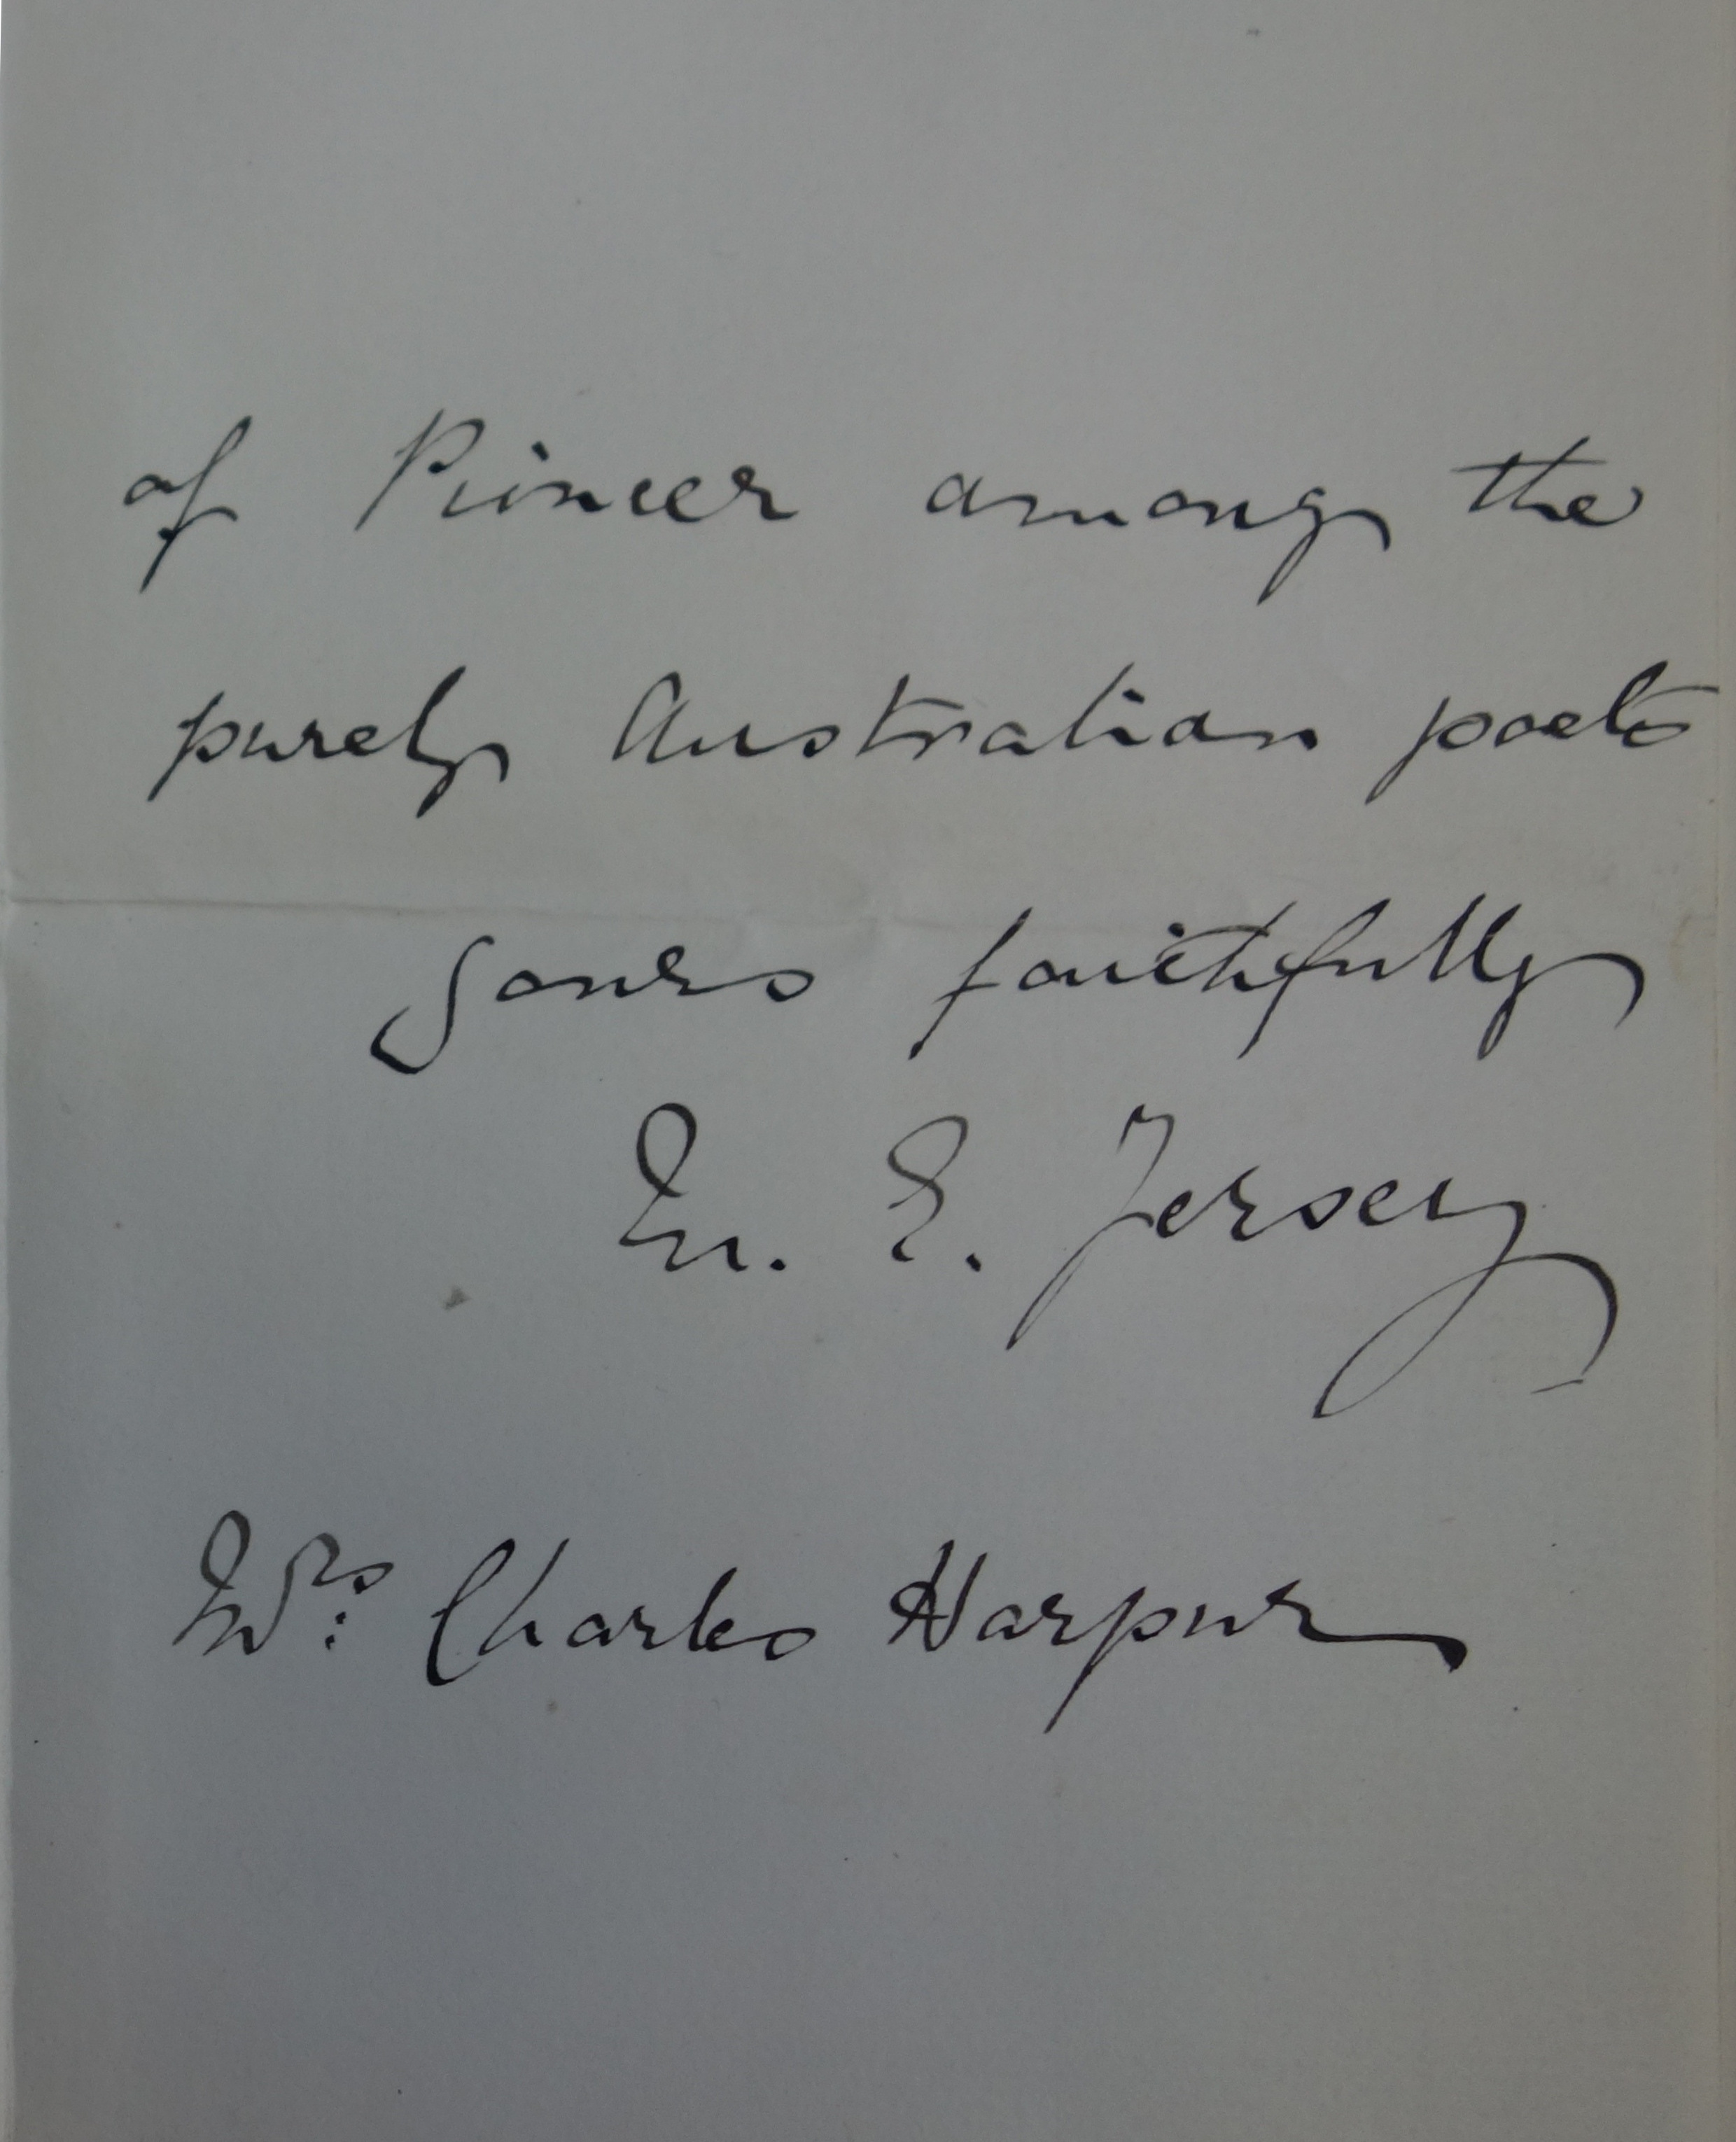 of Pioneer among the
purely Australian poets
Yours faithfully
M. E. Jersey
Mrs. Charles Harpur